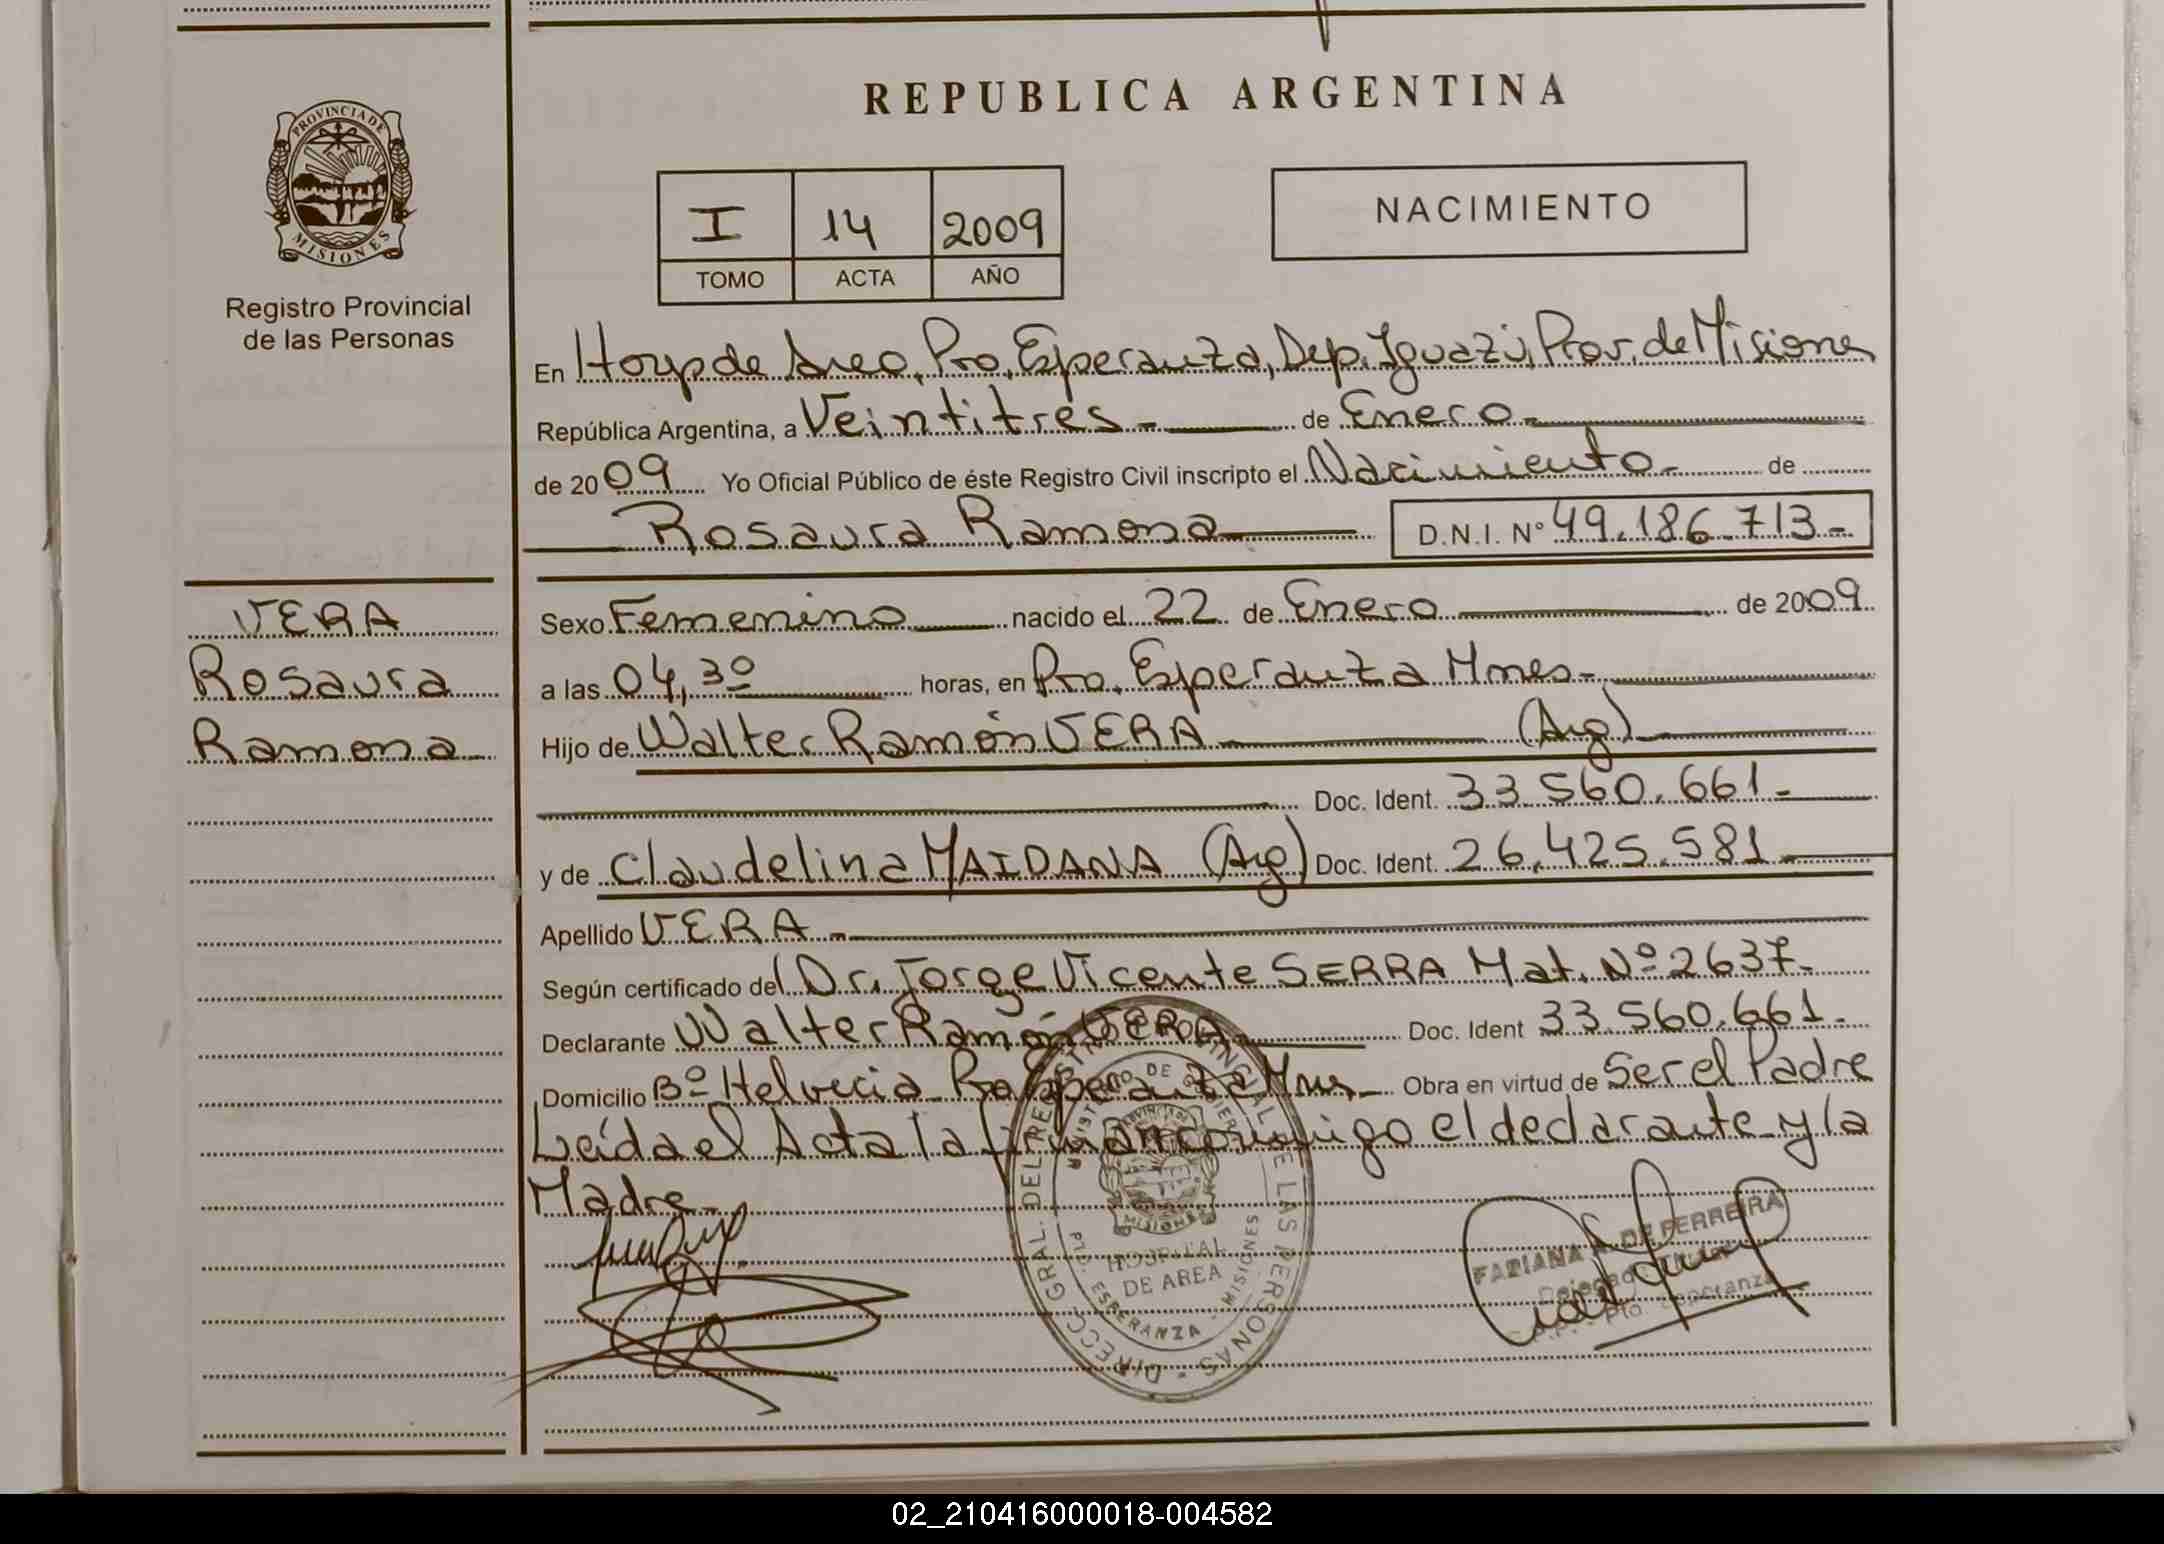 REPUBLICA ARGENTINA
PROVINCIA DE
MISIONES
Registro Provincial
de las Personas
I 14 2009
TOMO ACTA AÑO
NACIMIENTO
En Hosp de Area, Pto. Esperanza, Dep. Iguazú, Prov. de Misiones
República Argentina, a Veintitres.- de Enero.-
de 2009 Yo Oficial Público de éste Registro Civil inscripto el Nacimiento.- de
Rosaura Ramona D.N.I. Nº 49.186.713.-
VERA
Rosaura
Ramona.-
Sexo Femenino nacido el 22 de Enero de 2009
a las 04,30 horas, en Pto. Esperanza Mnes.-
Hijo de Walter Ramón VERA (Arg)
Doc. Ident. 33.560.661.-
y de Claudelina MAIDANA (Arg) Doc. Ident. 26.425.581.-
Apellido VERA.-
Según certificado del Dr. Jorge Vicente SERRA Mat. Nº 2637.-
Declarante Walter Ramón VERA Doc. Ident 33.560.661.-
Domicilio Bº Helvecia Pto Esperanza Mnes.- Obra en virtud de Ser el Padre
Leída el Acta la firman conmigo el declarante y la
Madre.-
DIRECC. GRAL. DEL REGISTRO PROVINCIAL DE LAS PERSONAS
PROVINCIA DE
MISIONES
HOSPITAL
DE AREA
ESPERANZA - MISIONES
FABIANA A. DE FERREIRA
Pto. Esperanza
02_210416000018-004582